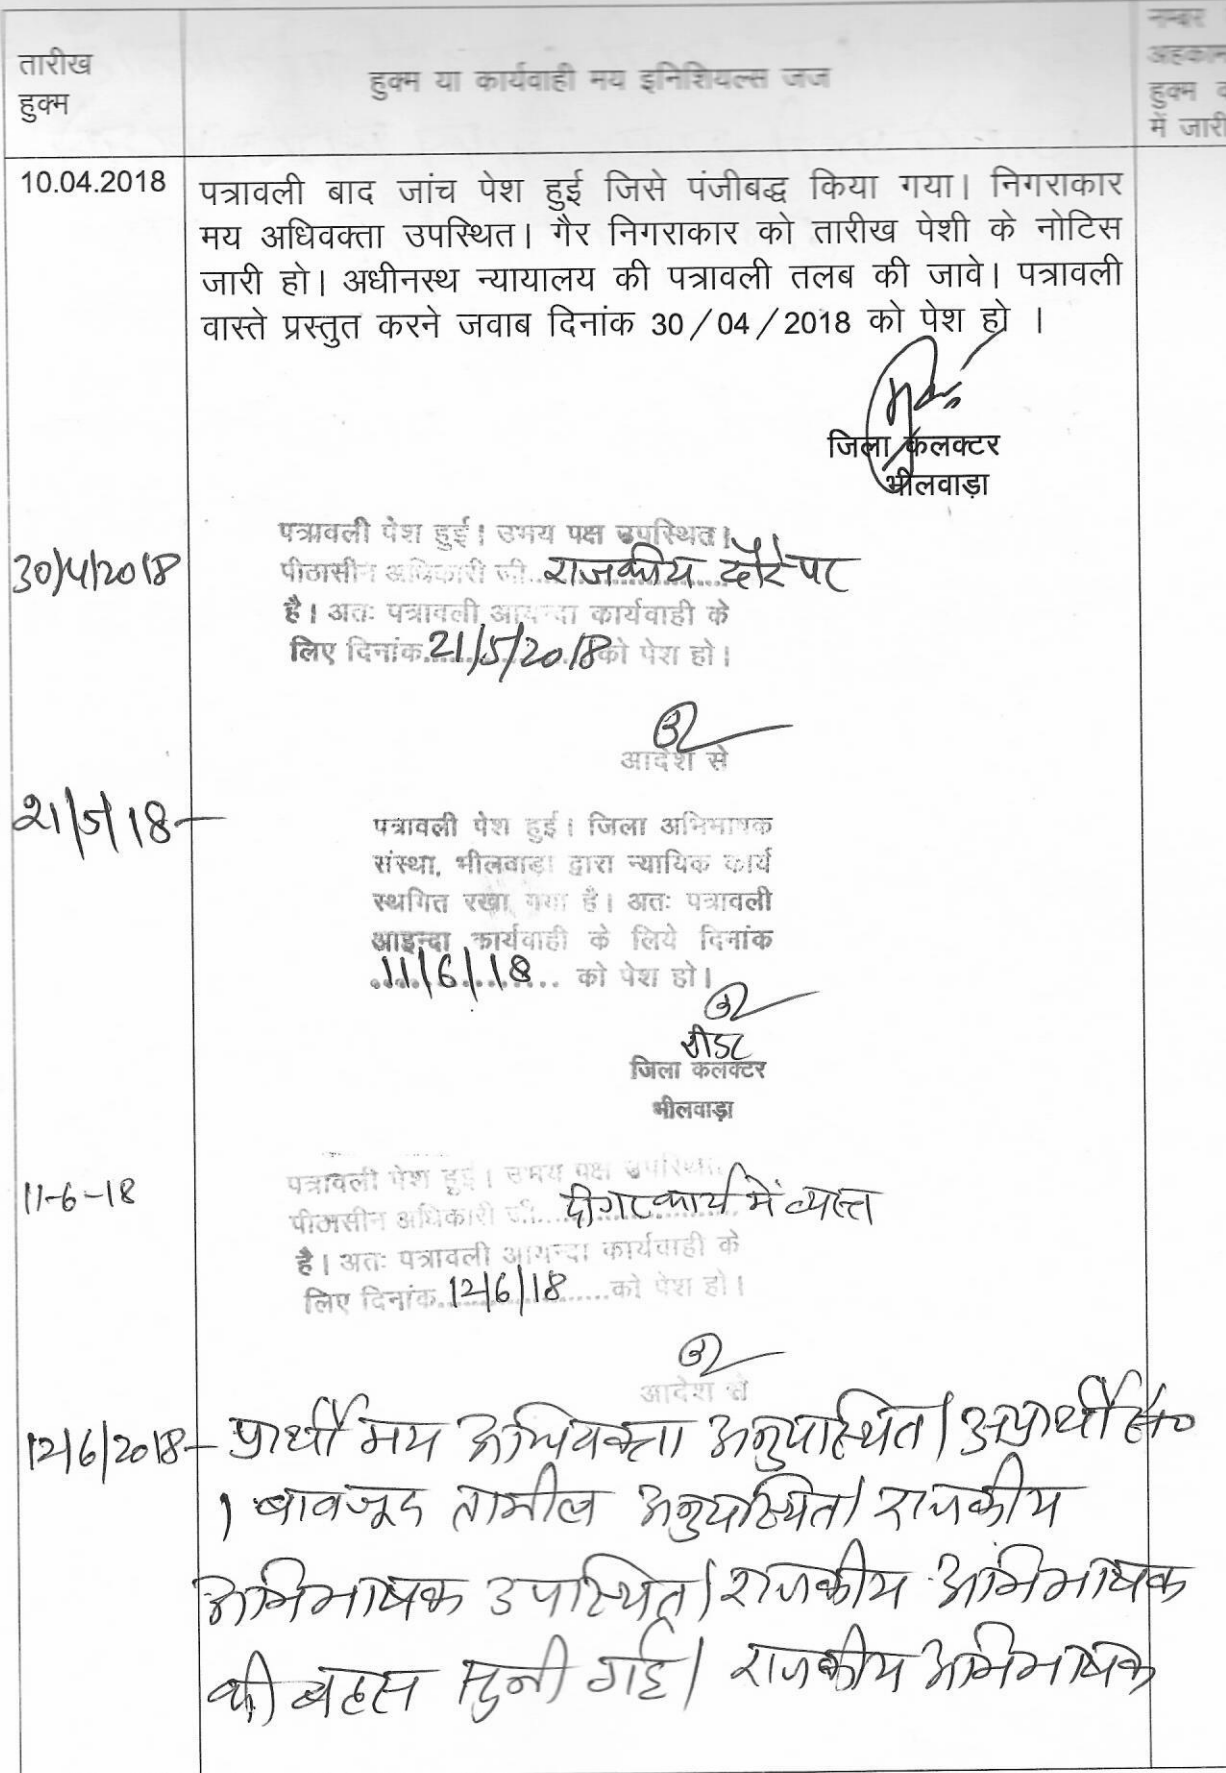 तारीख
हुक्म
हुक्म या कार्यवाही मय इनिशियल्स जज
नम्बर
अहकाम
हुक्म
में जारी
10.04.2018
पत्रावली बाद जांच पेश हुई जिसे पंजीबद्ध किया गया। निगराकार
मय अधिवक्ता उपस्थित। गैर निगराकार को तारीख पेशी के नोटिस
जारी हो। अधीनस्थ न्यायालय की पत्रावली तलब की जावे। पत्रावली
वास्ते प्रस्तुत करने जवाब दिनांक 30/04/2018 को पेश हो ।
जिला कलक्टर
भीलवाड़ा
30/4/2018
पत्रावली पेश हुई। उभय पक्ष उपस्थित।
पीठासीन अधिकारी जी..राजकीय दौरे पर
है। अतः पत्रावली आयन्दा कार्यवाही के
लिए दिनांक..21/5/2018 को पेश हो।
आदेश से
21/5/18-
पत्रावली पेश हुई। जिला अभिभाषक
संस्था, भीलवाडा द्वारा न्यायिक कार्य
स्थगित रखा गया है। अतः पत्रावली
आइन्दा कार्यवाही के लिये दिनांक
..11/6/18... को पेश हो।
रीडर
जिला कलक्टर
भीलवाड़ा
11-6-18
पत्रावली पेश हुई। उभय पक्ष उपस्थित।
पीठासीन अधिकारी जी.. दीगर कार्य में व्यस्त
है। अतः पत्रावली आयन्दा कार्यवाही के
लिए दिनांक..12/6/18.....को पेश हो।
आदेश से
12/6/2018- प्रार्थी मय अधिवक्ता अनुपस्थित। अप्रार्थी सं०
1 बावजूद तामील अनुपस्थित। राजकीय
अभिभाषक उपस्थित। राजकीय अभिभाषक
की बहस सुनी गई। राजकीय अभिभाषक